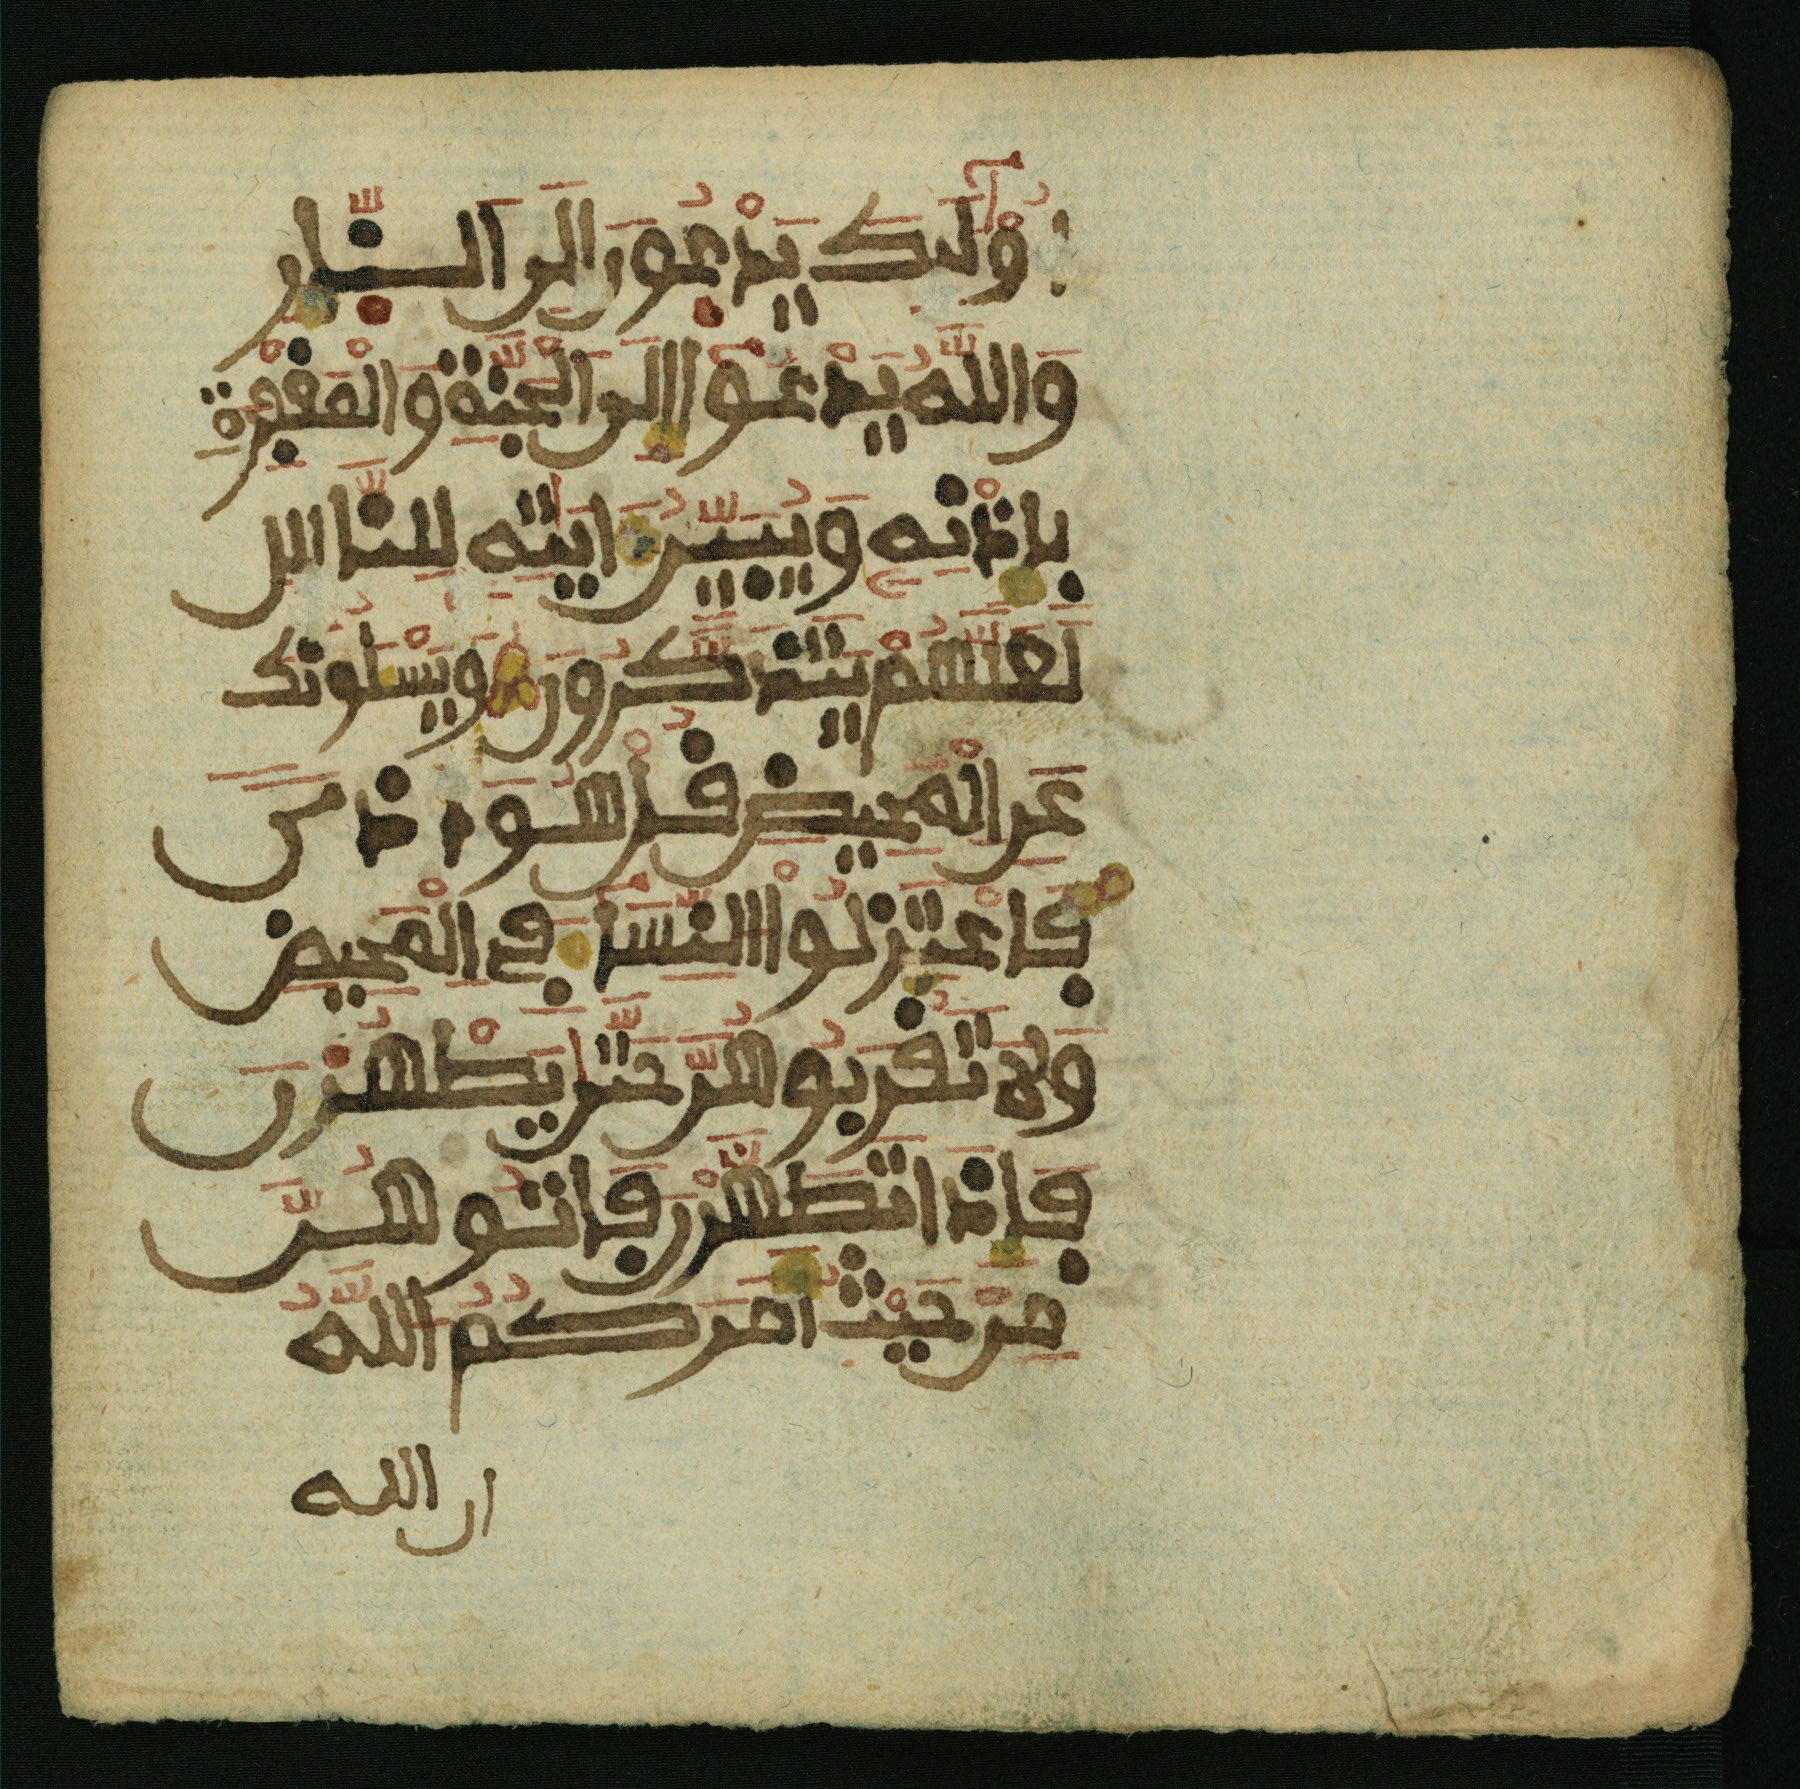 أُوْلَٰٓئِكَ يَدْعُونَ إِلَى النّ۪ارِ
وَاللَّهُ يَدْعُوٓاْ إِلَى الْجَنَّةِ وَالْمَغْفِرَةِ
بِإِذْنِهِۦ وَيُبَيِّنُ ءَايَٰتِهِۦ لِلنَّاسِ
لَعَلَّهُمْ يَتَذَكَّرُونَ وَيَسْـَٔلُونَكَ
عَنِ الْمَحِيضِ قُلْ هُوَ أَذًى
فَاعْتَزِلُواْ النِّسَآءَ فِي الْمَحِيضِ
وَلَا تَقْرَبُوهُنَّ حَتَّىٰ يَطْهُرْنَ
فَإِذَا تَطَهَّرْنَ فَأْتُوهُنَّ
مِنْ حَيْثُ أَمَرَكُمُ اللَّهُ
ان الله